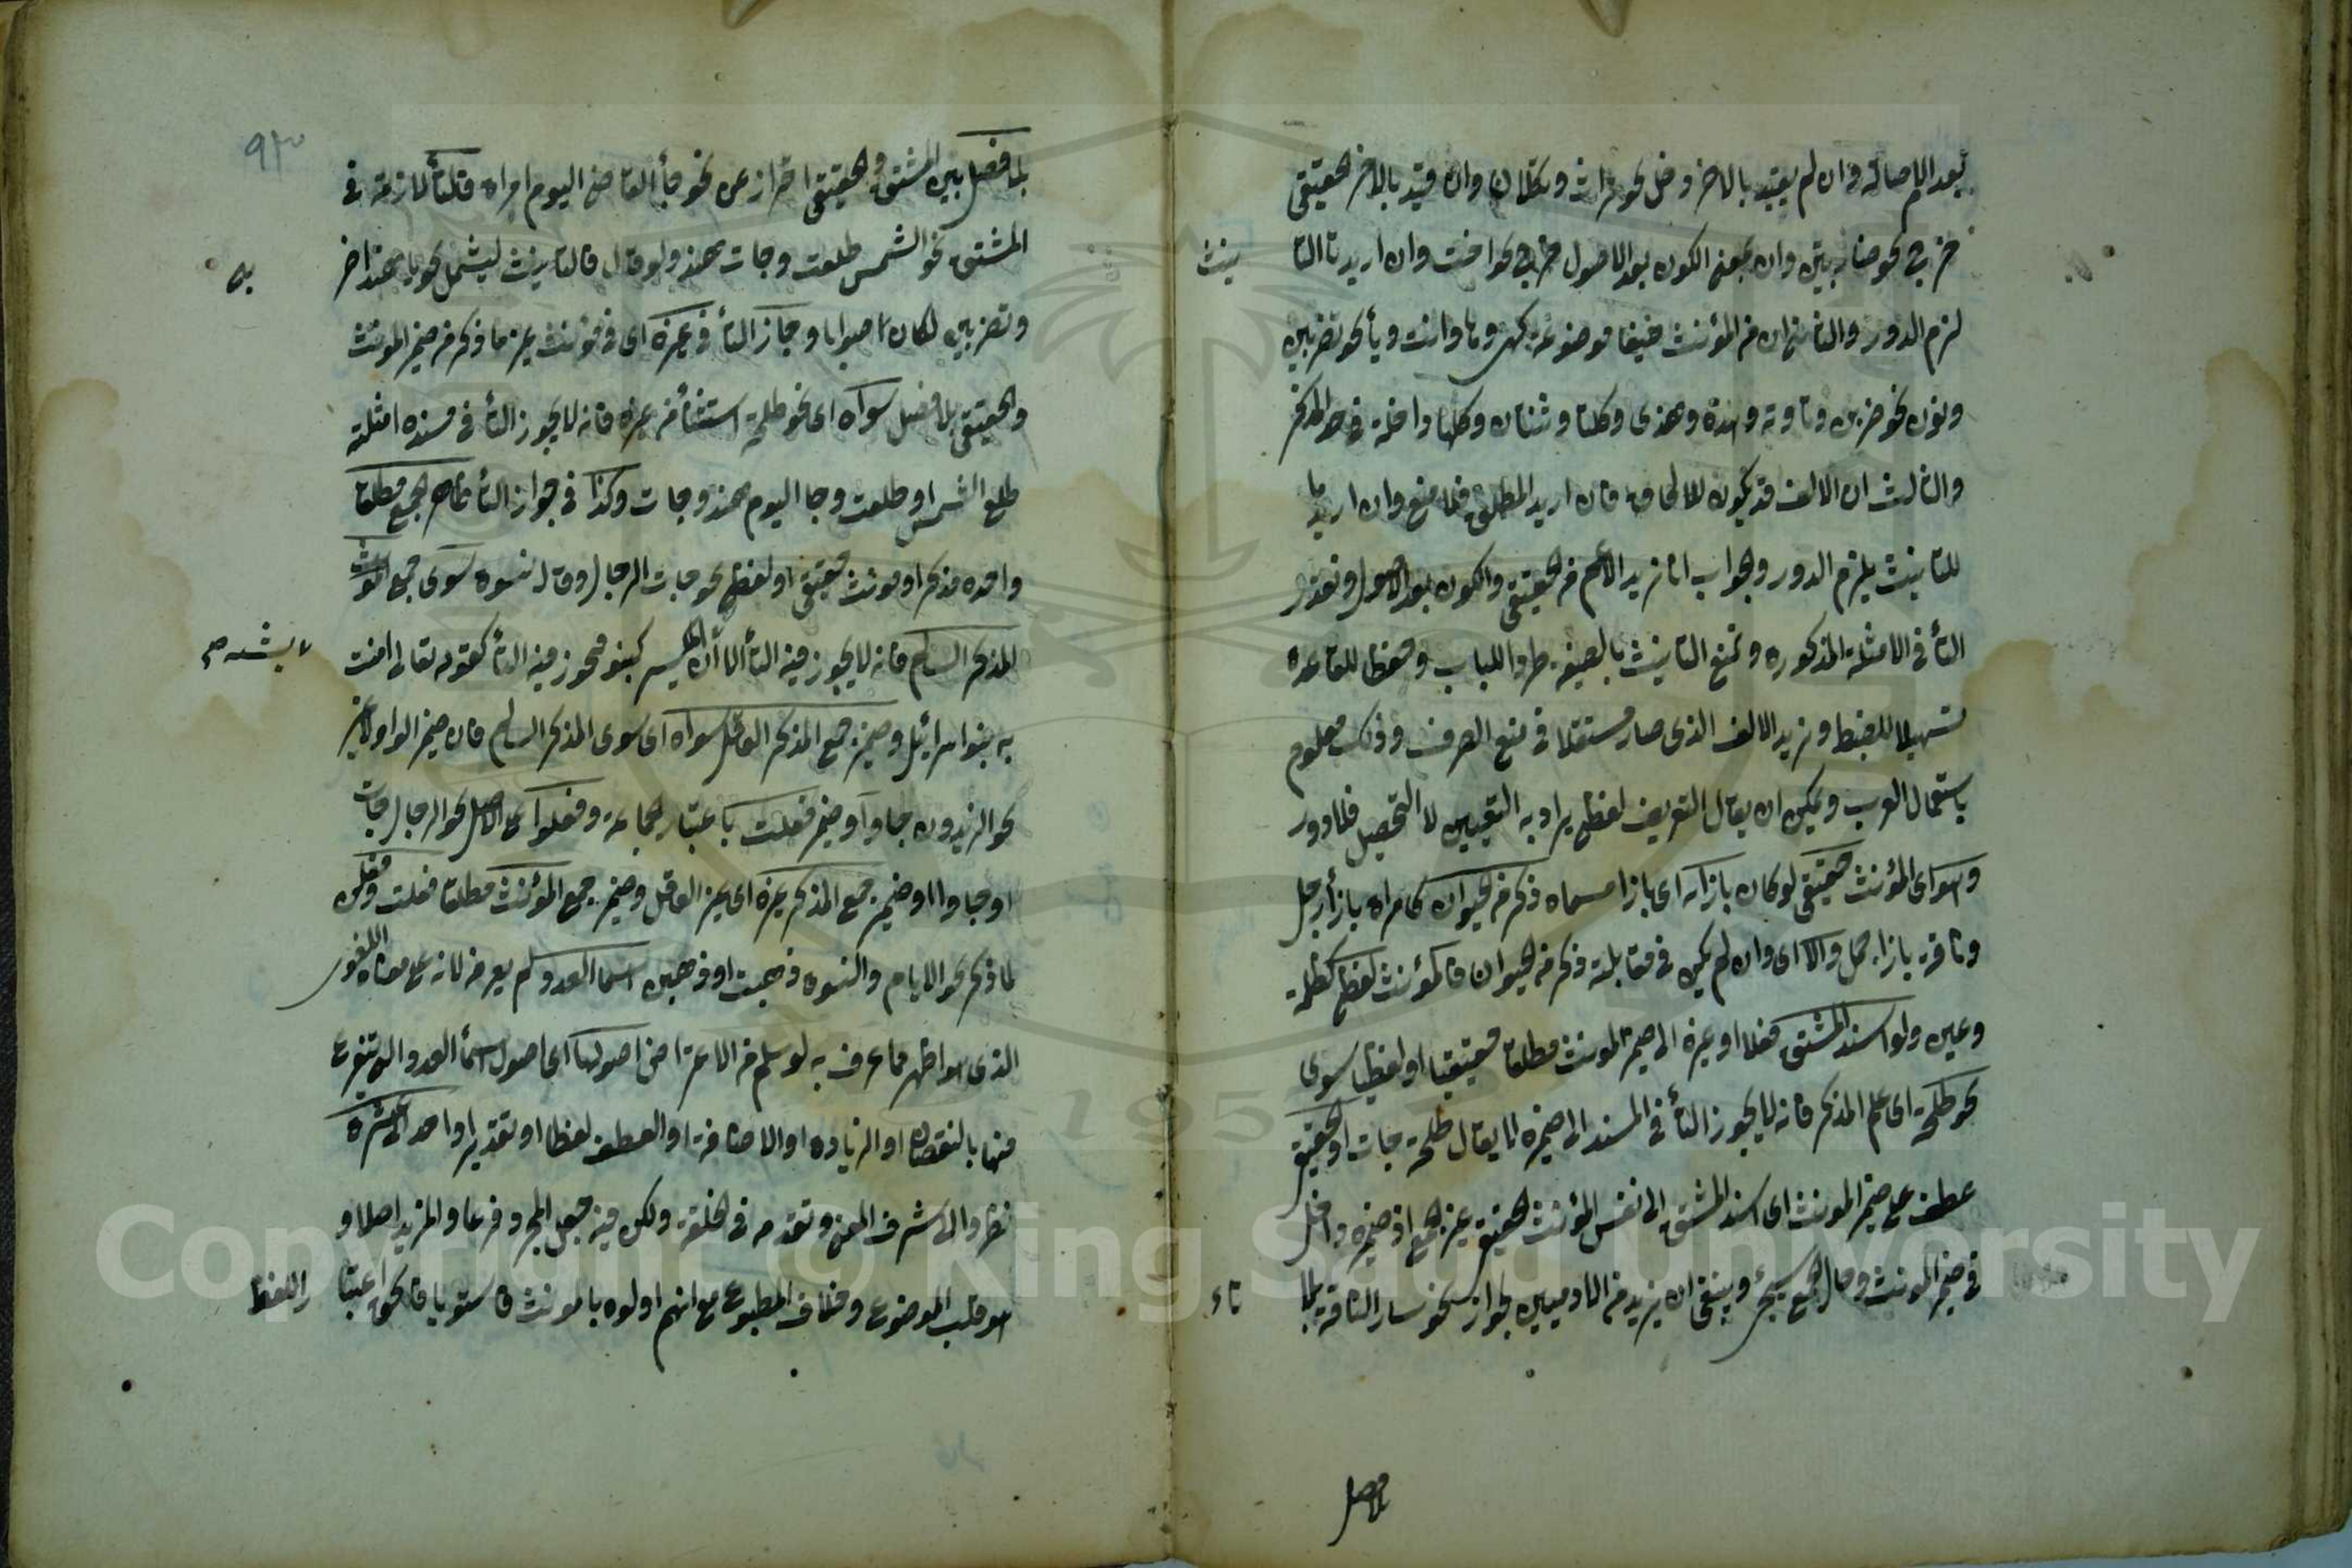 بعد الاصالة وان لم يقيد بالاخر دخل نحو تراث وتكلان وان قيد بالاخر الحقيقى
خرج نحو ضاربتين وان بمعنى الكون بعد الاصول خرج نحو اخت وان اريد تا التا
نيث
لزم الدور والثانى ان من المؤنث ضيغا موضوعة كهى وها وانت ويا نحو تضربين
ونون نحو ضربن وتا وته وهذه وهذى وكلتا وثنتان وكلها داخلة فى حد المذكر
والثالث ان الالف قد يكون للالحاق فان اريد المطلق فلا منع وان اريد ما
للتانيث يلزم الدور والجواب انا نريد الاعم من الحقيقى والكون بعد الاصول ونقدر
التأ فى الامثلة المذكورة ونمنع التانيث بالصيغة طردا للباب وحفظا للقاعدة
تسهيلا للضبط ونريد الالف الذى صار مستقلا فى منع الصرف وذلك معلوم
باستعمال العرب ويمكن ان يقال التعريف لفظى يراد به التعيين لا التحصيل فلا دور
وهو اى المؤنث حقيقى لو كان بازائه اى بازا مسماه ذكر من الحيوان كامراه بازأ رجل
وناقة بازا جمل والا اى وان لم يكن فى مقابلة ذكر من الحيوان فالمؤنث لفظى كظلمة
وعين ولو اسند المشتق فعلا او غيره الى ضمير المونث مطلقا حقيقيا او لفظيا سوى
نحو طلحة اى علم المذكر فانه لا يجوز التأ فى المسند الى ضميره لا يقال طلحة جات او الحقيقى
عطف على ضمير المونث اى اسند المشتق الى نفس المؤنث الحقيقى غير الجمع اذ ضميره داخل
فى ضمير المونث وحال الجمع سيجئ وينبغى ان يزيد من الادميين لجواز نحو سار الناقة بلا
تاء
بلا فصل
بلا فصل بين المشتق والحقيقى احتراز عن نحو جأ القاضى اليوم امراه فالتأ لازمة فى
المشتق نحو الشمس طلعت وجات هند ولو قال فالتانيث ليشمل نحو يا هند اضر
بى
وتضربين لكان اصوابا وجاز التأ فى غيره اى فى مونث غير ما ذكر من ضمير المونث
والحقيقى بلا فصل سواه اى نحو طلحة استثنأ من غيره فانه لا يجوز التأ فى مسنده امثلة
طلع الشمس او طلعت وجا اليوم هند وجات وكذا فى جواز التأ ظاهر الجمع مطلقا
واحده مذكر او مونث حقيقى او لفظى نحو جات الرجال وقال نسوه سوى جمع
المذكر السالم فانه لا يجوز فيه التأ كبنو فيجوز فيه التأ كقوله تعالى امنت
به بنو اسرائيل وضمير جمع المذكر العاقل سواه اى سوى المذكر السالم فان ضميره الواو لا غير
نحو الزيدون جاوا وضمير فعلت باعتبار الجماعة وفعلوا على الاصل نحو الرجال جات
او جاوا وضمير جمع المذكر غيره اى غير العاقل وضمير جمع المؤنث مطلقا فعلت وفعلن
لما ذكر نحو الايام والنسوه ذهبت او ذهبن اسما العدد ولم يعرف لانه على معناه اللغوى
الذى هو اظهر مما عرف به لو سلم من الاعترا ض اصولها اى اصول اسمأ العدد التى يتفرع
منها بالنقصان او الزياده او الاضافة او العطف لفظا او تقديرا واحد الى عشرة
نظر والى شرف المعنى وتقدمه فى الخلقة ولكن فيه جعل المجرد فرعا والمزيد اصلا و
هو قلب الموضوع وخلاف المطبوع مع انهم اولوه بالمونث فاستويا فالحق اعتبا
راللفظ